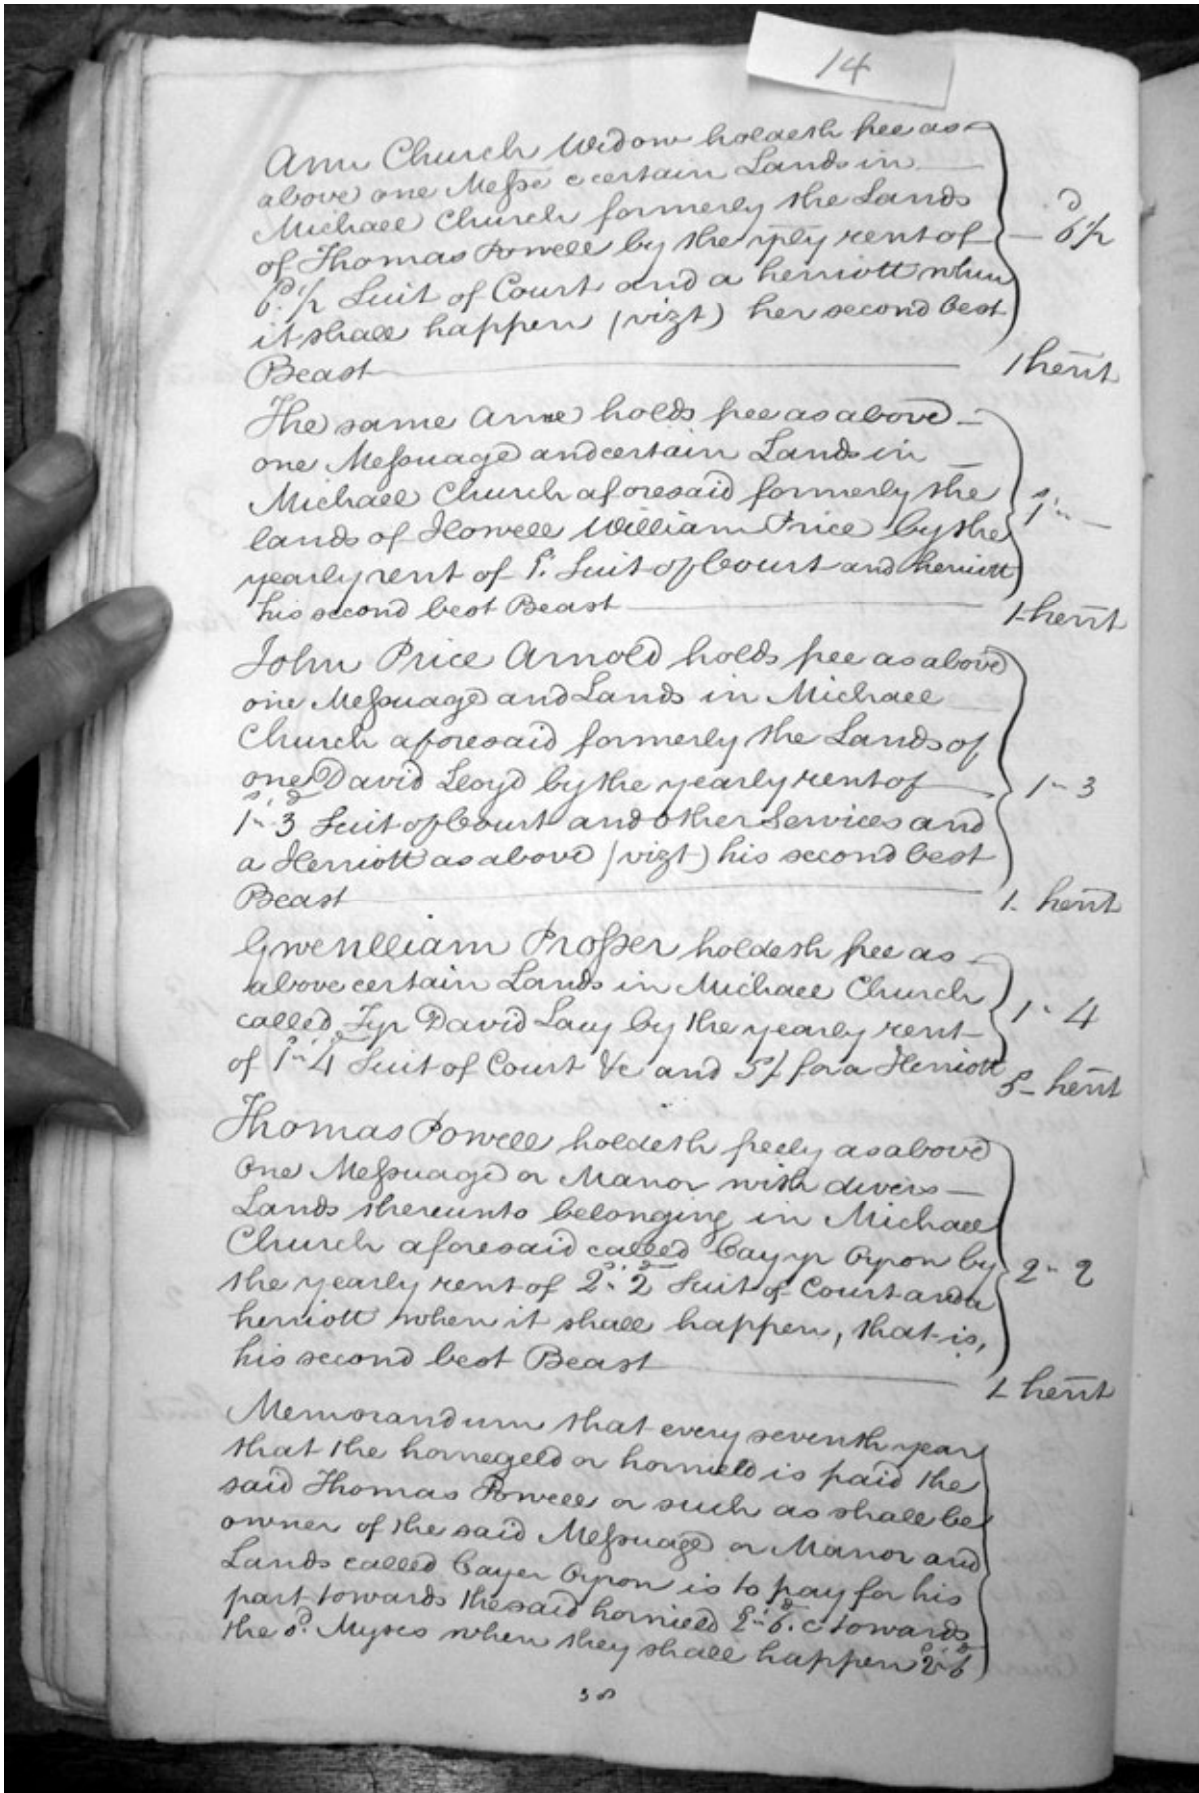 14
Ann Church Widow holdeth free as
above one Messe & certain Lands in
Michael Church formerly the Lands
of Thomas Powell by the yrly rent of — 6d ½
6d. ½ Suit of Court and a herriott when
it shall happen (vizt) her second best
Beast 1 herrt
The same Anne holds free as above
one Messuage and certain Lands in
Michael Church aforesaid formerly the 1s. " —
lands of Howell William Price by the
yearly rent of 1s. Suit of Court and herriott
his second best Beast 1 herrt
John Price Arnold holds free as above
one Messuage and Lands in Michael
Church aforesaid formerly the Lands of
one David Lloyd by the yearly rent of 1 " 3
1s. " 3d Suit of Court and other Services and
a Herriott as above (vizt) his second best
Beast 1 - herrt
Gwenlliam Prosser holdeth free as
above certain Lands in Michael Church
called Tyr David Lacy by the yearly rent 1 " 4
of 1s. " 4d Suit of Court &c and 5/ for a Herriott 5 - herrt
Thomas Powell holdeth freely as above
One Messuage or Manor with divers
Lands thereunto belonging in Michael
Church aforesaid called Cayyr Gynon by
the yearly rent of 2s. " 2d Suit of Court and a 2 " 2
herriott when it shall happen, that is,
his second best Beast 1 herrt
Memorandum that every seventh year
that the hornegeld or horneld is paid the
said Thomas Powell or such as shall be
owner of the said Messuage or Manor and
Lands called Cayer Gynon is to pay for his
part towards the said hornield 2s. " 6d. & towards
the sd. Myses when they shall happen 2s. " 6d